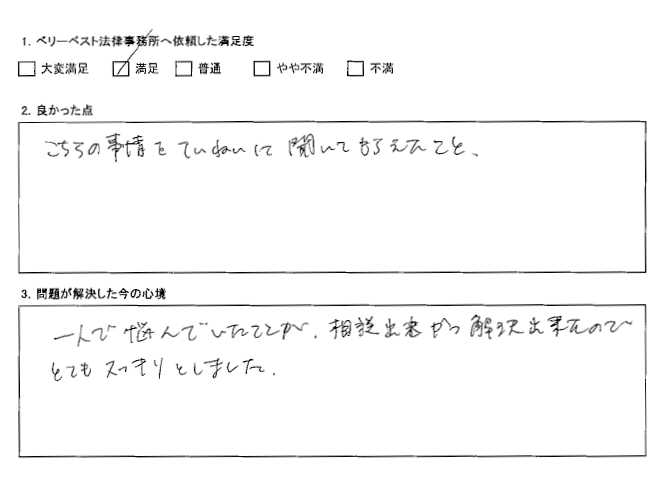 1. ベリーベスト法律事務所へ依頼した満足度
□ 大変満足 ☑ 満足 □ 普通 □ やや不満 □ 不満
2. 良かった点
こちらの事情をていねいに聞いてもらえたこと、
3. 問題が解決した今の心境
一人で悩んでいたことが、相談出来かつ解決出来たので
とてもスッキリとしました。